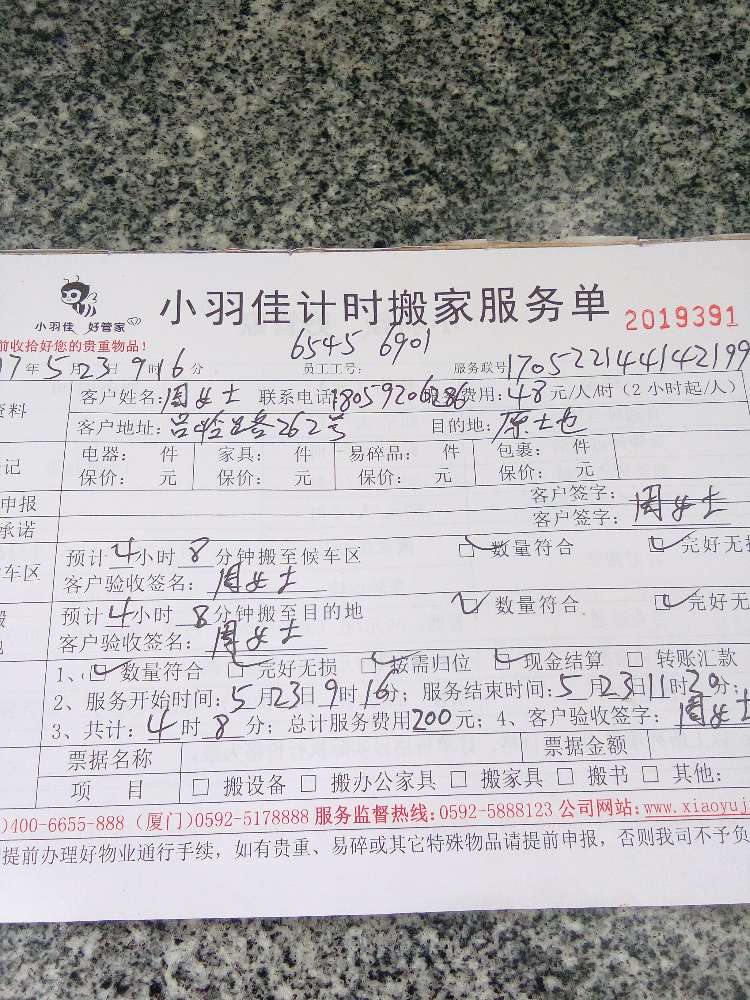 小羽佳 好管家
小羽佳计时搬家服务单
2019391
前收拾好您的贵重物品!
6545 6901
17年5月23日9时16分 员工工号: 服务联号170522144142199
资料 客户姓名:周女士 联系电话18059206286 费用:48元/人/时(2小时起/人)
客户地址:吕岭路262号 目的地:原土也
记 电器: 件 家具: 件 易碎品: 件 包裹: 件
保价: 元 保价: 元 保价: 元 保价: 元
申报 客户签字:周女士
承诺 客户签字:
车区 预计4小时8分钟搬至候车区 ☑数量符合 ☑完好无损
客户验收签名:周女士
预计4小时8分钟搬至目的地 ☑数量符合 ☑完好无
客户验收签名:周女士
1、☑数量符合 ☑完好无损 ☑按需归位 ☑现金结算 □转账汇款
2、服务开始时间:5月23日9时16分;服务结束时间:5月23日11时20分;
3、共计:4时8分;总计服务费用200元;4、客户验收签字:周女士
票据名称 票据金额
项 目 □搬设备 □搬办公家具 □搬家具 □搬书 □其他:
)400-6655-888 (厦门)0592-5178888 服务监督热线:0592-5888123 公司网站:www.xiaoyuj
提前办理好物业通行手续,如有贵重、易碎或其它特殊物品请提前申报,否则我司不予负